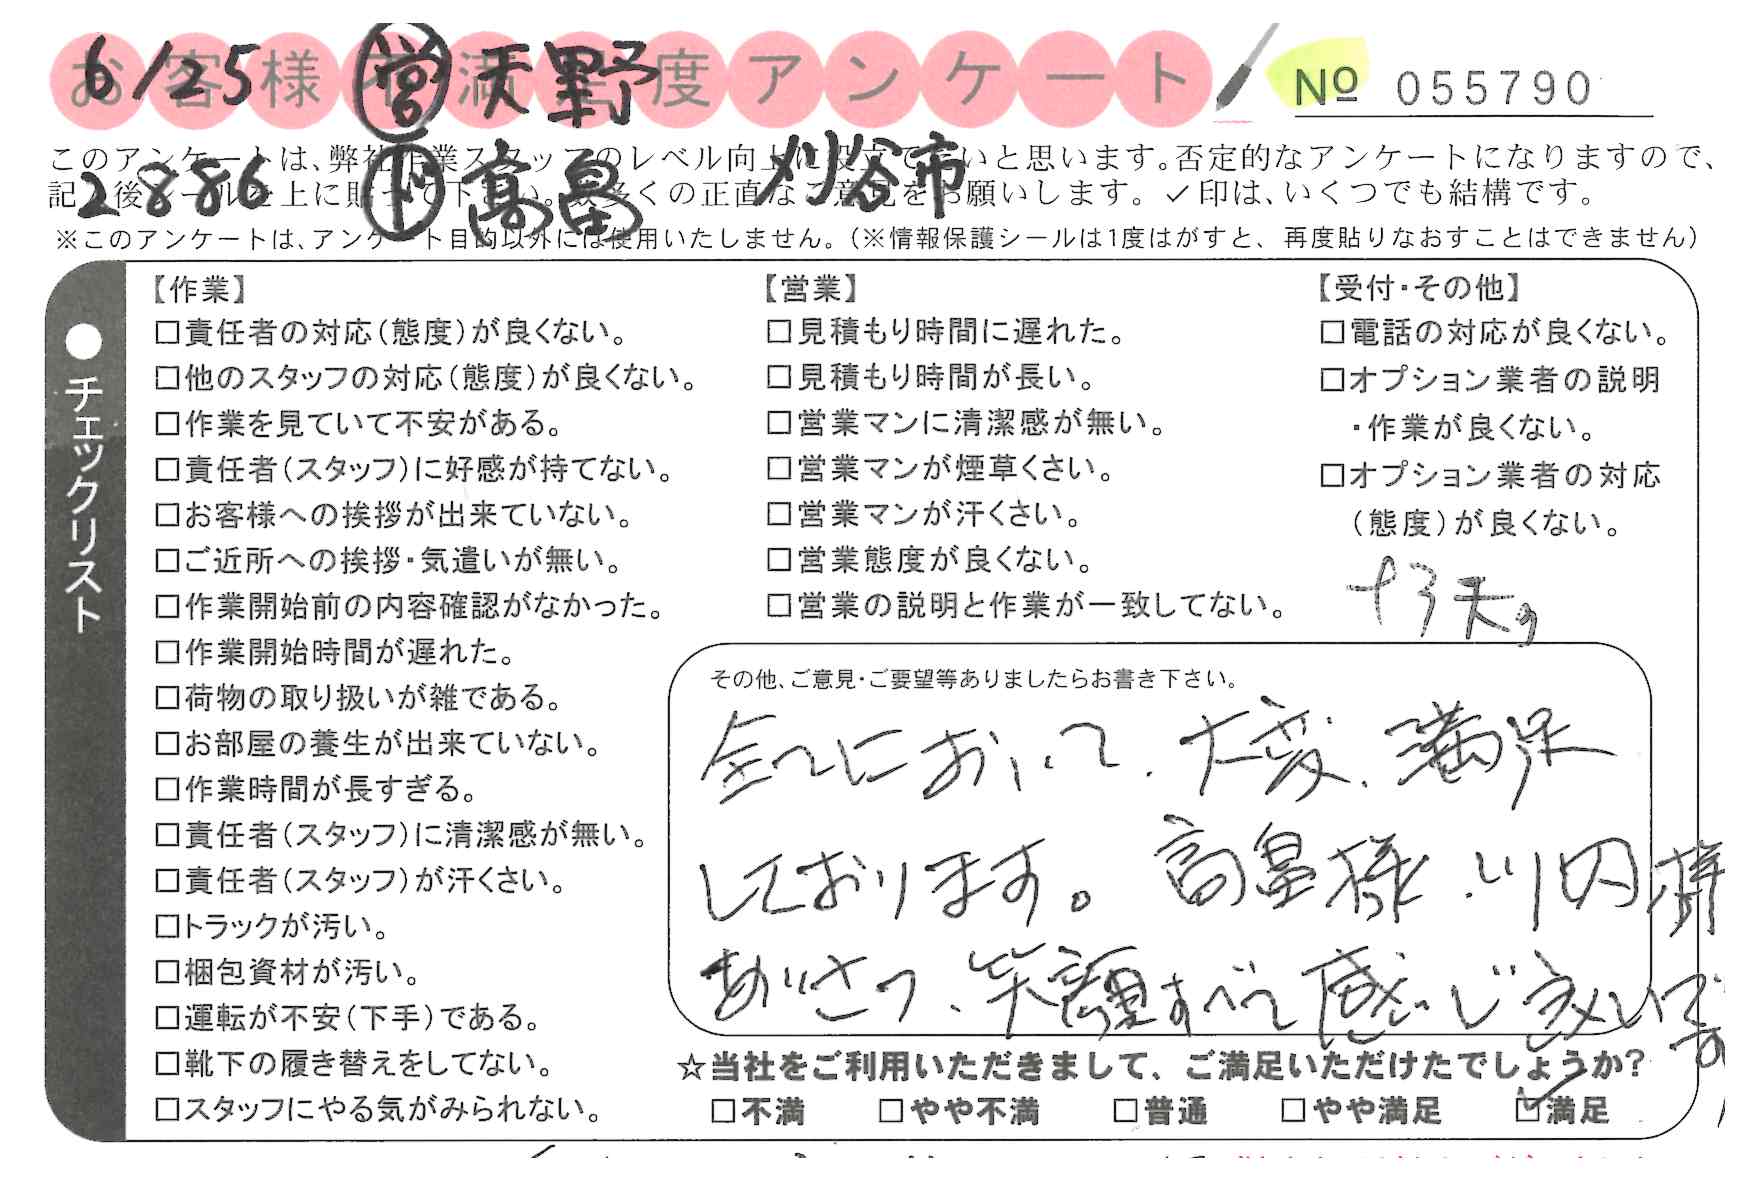 お客様不満足度アンケート
№ 055790
6/25 ㊀営 天野
2886 下 高畠 刈谷市
このアンケートは、弊社作業スタッフのレベル向上に役立てたいと思います。否定的なアンケートになりますので、
記入後シールを上に貼って下さい。数多くの正直なご意見をお願いします。✓印は、いくつでも結構です。
※このアンケートは、アンケート目的以外には使用いたしません。(※情報保護シールは1度はがすと、再度貼りなおすことはできません)
●チェックリスト
【作業】
□責任者の対応(態度)が良くない。
□他のスタッフの対応(態度)が良くない。
□作業を見ていて不安がある。
□責任者(スタッフ)に好感が持てない。
□お客様への挨拶が出来ていない。
□ご近所への挨拶・気遣いが無い。
□作業開始前の内容確認がなかった。
□作業開始時間が遅れた。
□荷物の取り扱いが雑である。
□お部屋の養生が出来ていない。
□作業時間が長すぎる。
□責任者(スタッフ)に清潔感が無い。
□責任者(スタッフ)が汗くさい。
□トラックが汚い。
□梱包資材が汚い。
□運転が不安(下手)である。
□靴下の履き替えをしてない。
□スタッフにやる気がみられない。
【営業】
□見積もり時間に遅れた。
□見積もり時間が長い。
□営業マンに清潔感が無い。
□営業マンが煙草くさい。
□営業マンが汗くさい。
□営業態度が良くない。
□営業の説明と作業が一致してない。
【受付・その他】
□電話の対応が良くない。
□オプション業者の説明
・作業が良くない。
□オプション業者の対応
(態度)が良くない。
その他、ご意見・ご要望等ありましたらお書き下さい。
全てにおいて、大変、満足
しております。高畠様、
あいさつ、笑顔すべて感じ
☆当社をご利用いただきまして、ご満足いただけたでしょうか?
□不満 □やや不満 □普通 □やや満足 ☑満足